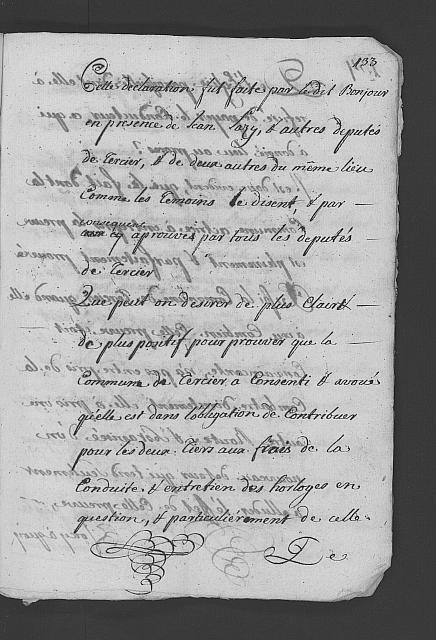 133
Cette declaration fut faite par le dit Bonjour
en presence de Jean Jazy, & autres deputés
de Cercier, & de deux autres du même lieu
Comme les temoins le disent, & par
consequent
ce aprouvé par tous les deputés
de Cercier
Que peut on desirer de plus Clair &
de plus positif pour prouver que la
Commune de Cercier a Consenti & avoué
qu'elle est dans l'obligation de Contribuer
pour les deux Tiers aux frais de la
Conduite & entretien des horloges en
question, & particulierement de celle
De